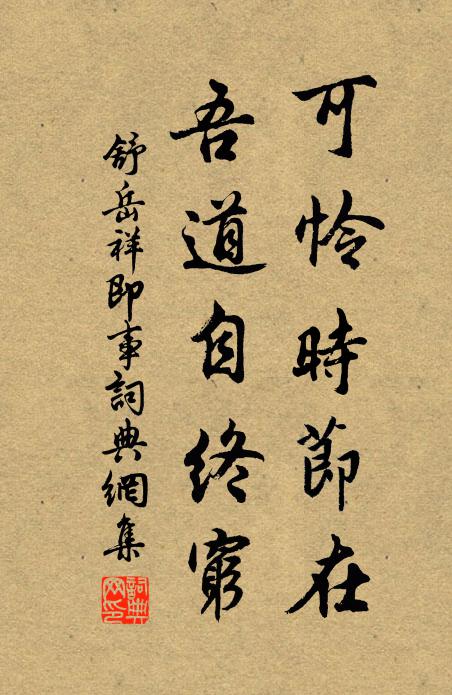 可怜時節在
吾道自終窮
舒岳祥即事詞典網集
詞典网印